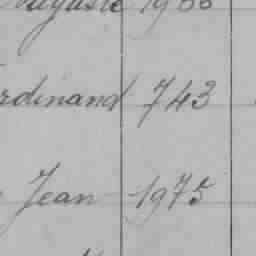 Auguste 1988
rdinand 743
Jean 1975